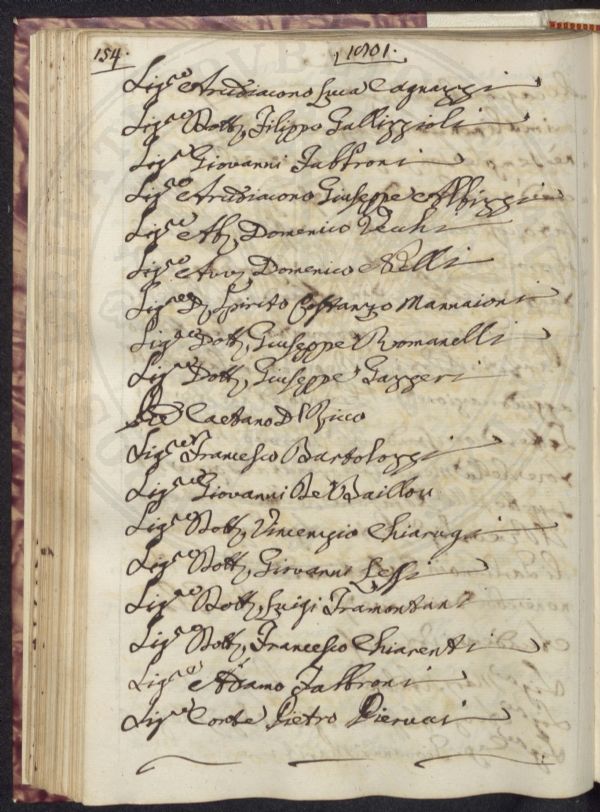 154.
1801.
Sig.re Arcidiacono Luca Cagnazzi
Sig.re Dott. Filippo Gallizzioli
Sig.re Giovanni Fabbroni
Sig.re Arcidiacono Giuseppe Albizzi
Sig.re Ab. Domenico Vecchi
Sig.re Avv. Domenico Nelli
Sig.re D. Spirito Costanzo Mannaioni
Sig.re Dott. Giuseppe Romanelli
Sig.re Dott. Giuseppe Gazzeri
Gaetano Del Ricco
Sig.re Francesco Bartolozzi
Sig.re Giovanni De Baillou
Sig.re Dott. Vincenzio Chiarugi
Sig.re Dott. Giovanni Lessi
Sig.re Dott. Luigi Tramontani
Sig.re Dott. Francesco Chiarenti
Sig.re Adamo Fabbroni
Sig.re Conte Pietro Piervai